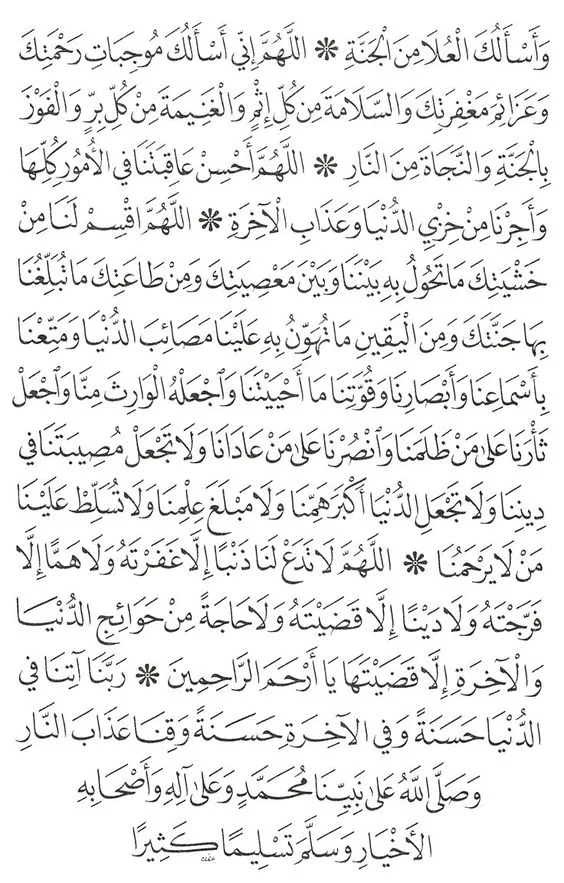 وَأَسْأَلُكَ الْعُلَا مِنَ الْجَنَّةِ ❊ اللَّهُمَّ إِنِّي أَسْأَلُكَ مُوجِبَاتِ رَحْمَتِكَ
وَعَزَائِمَ مَغْفِرَتِكَ وَالسَّلَامَةَ مِنْ كُلِّ إِثْمٍ وَالْغَنِيمَةَ مِنْ كُلِّ بِرٍّ وَالْفَوْزَ
بِالْجَنَّةِ وَالنَّجَاةَ مِنَ النَّارِ ❊ اللَّهُمَّ أَحْسِنْ عَاقِبَتَنَا فِي الْأُمُورِ كُلِّهَا
وَأَجِرْنَا مِنْ خِزْيِ الدُّنْيَا وَعَذَابِ الْآخِرَةِ ❊ اللَّهُمَّ اقْسِمْ لَنَا مِنْ
خَشْيَتِكَ مَا تَحُولُ بِهِ بَيْنَنَا وَبَيْنَ مَعْصِيَتِكَ وَمِنْ طَاعَتِكَ مَا تُبَلِّغُنَا
بِهَا جَنَّتَكَ وَمِنَ الْيَقِينِ مَا تُهَوِّنُ بِهِ عَلَيْنَا مَصَائِبَ الدُّنْيَا وَمَتِّعْنَا
بِأَسْمَاعِنَا وَأَبْصَارِنَا وَقُوَّتِنَا مَا أَحْيَيْتَنَا وَٱجْعَلْهُ الْوَارِثَ مِنَّا وَٱجْعَلْ
ثَأْرَنَا عَلَىٰ مَنْ ظَلَمَنَا وَٱنْصُرْنَا عَلَىٰ مَنْ عَادَانَا وَلَا تَجْعَلْ مُصِيبَتَنَا فِي
دِينِنَا وَلَا تَجْعَلِ الدُّنْيَا أَكْبَرَ هَمِّنَا وَلَا مَبْلَغَ عِلْمِنَا وَلَا تُسَلِّطْ عَلَيْنَا
مَنْ لَا يَرْحَمُنَا ❊ اللَّهُمَّ لَا تَدَعْ لَنَا ذَنْبًا إِلَّا غَفَرْتَهُ وَلَا هَمًّا إِلَّا
فَرَّجْتَهُ وَلَا دَيْنًا إِلَّا قَضَيْتَهُ وَلَا حَاجَةً مِنْ حَوَائِجِ الدُّنْيَا
وَالْآخِرَةِ إِلَّا قَضَيْتَهَا يَا أَرْحَمَ الرَّاحِمِينَ ❊ رَبَّنَا آتِنَا فِي
الدُّنْيَا حَسَنَةً وَفِي الْآخِرَةِ حَسَنَةً وَقِنَا عَذَابَ النَّارِ
وَصَلَّى اللَّهُ عَلَىٰ نَبِيِّنَا مُحَمَّدٍ وَعَلَىٰ آلِهِ وَأَصْحَابِهِ
الْأَخْيَارِ وَسَلَّمَ تَسْلِيمًا كَثِيرًا